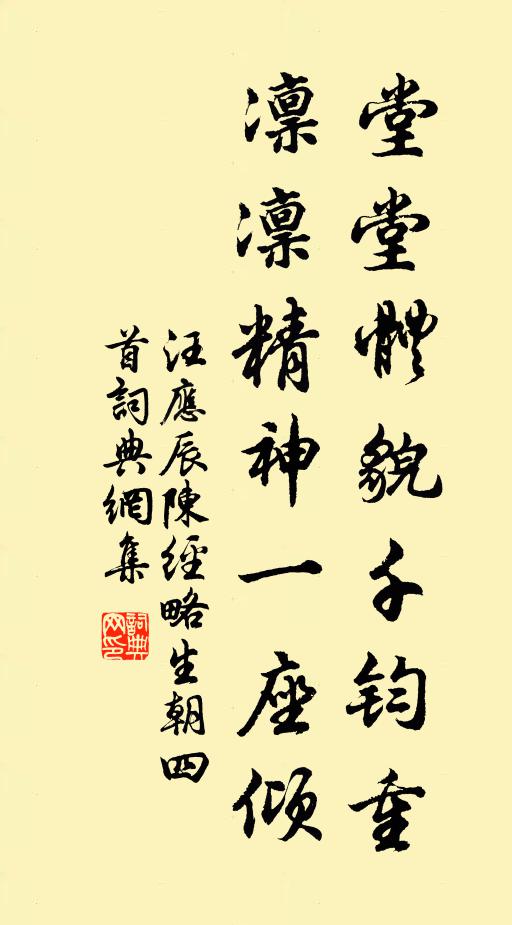 堂堂體貌千鈞重
凜凜精神一座傾
汪應辰陳經略生朝四
首詞典網集
詞典
网印